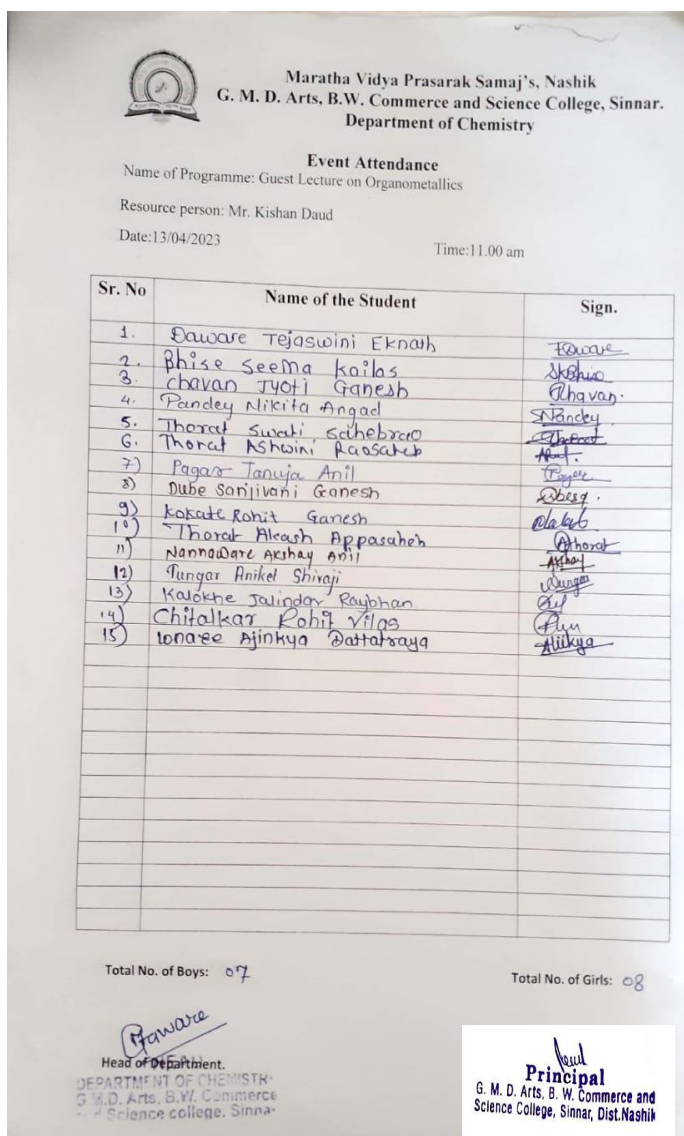 Maratha Vidya Prasarak Samaj's, Nashik
G. M. D. Arts, B.W. Commerce and Science College, Sinnar.
Department of Chemistry
Event Attendance
Name of Programme: Guest Lecture on Organometallics
Resource person: Mr. Kishan Daud
Date:13/04/2023 Time:11.00 am
Sr. No Name of the Student Sign.
1. Daware Tejaswini Eknath Daware
2. Bhise Seema Kailas SKBhise
3. Chavan Jyoti Ganesh Chavan.
4. Pandey Nikita Angad
5. Thorat Swati Sahebrao Thorat
6. Thorat Ashwini Raosaheb
7) Pagar Tanuja Anil
8) Dube Sanjivani Ganesh
9) Kokate Rohit Ganesh
10) Thorat Akash Appasaheb Athorat
11) Nannaware Akshay Anil Akshay
12) Tungar Aniket Shivaji
13) Kalokhe Jalindar Raybhan
14) Chitalkar Rohit Vilas
15) Lonare Ajinkya Dattatraya
Total No. of Boys: 07 Total No. of Girls: 08
Head of Department.
DEPARTMENT OF CHEMISTR
G.M.D. Arts, B.W. Commerce
Science college, Sinna
Principal
G. M. D. Arts, B. W. Commerce and
Science College, Sinnar, Dist.Nashik